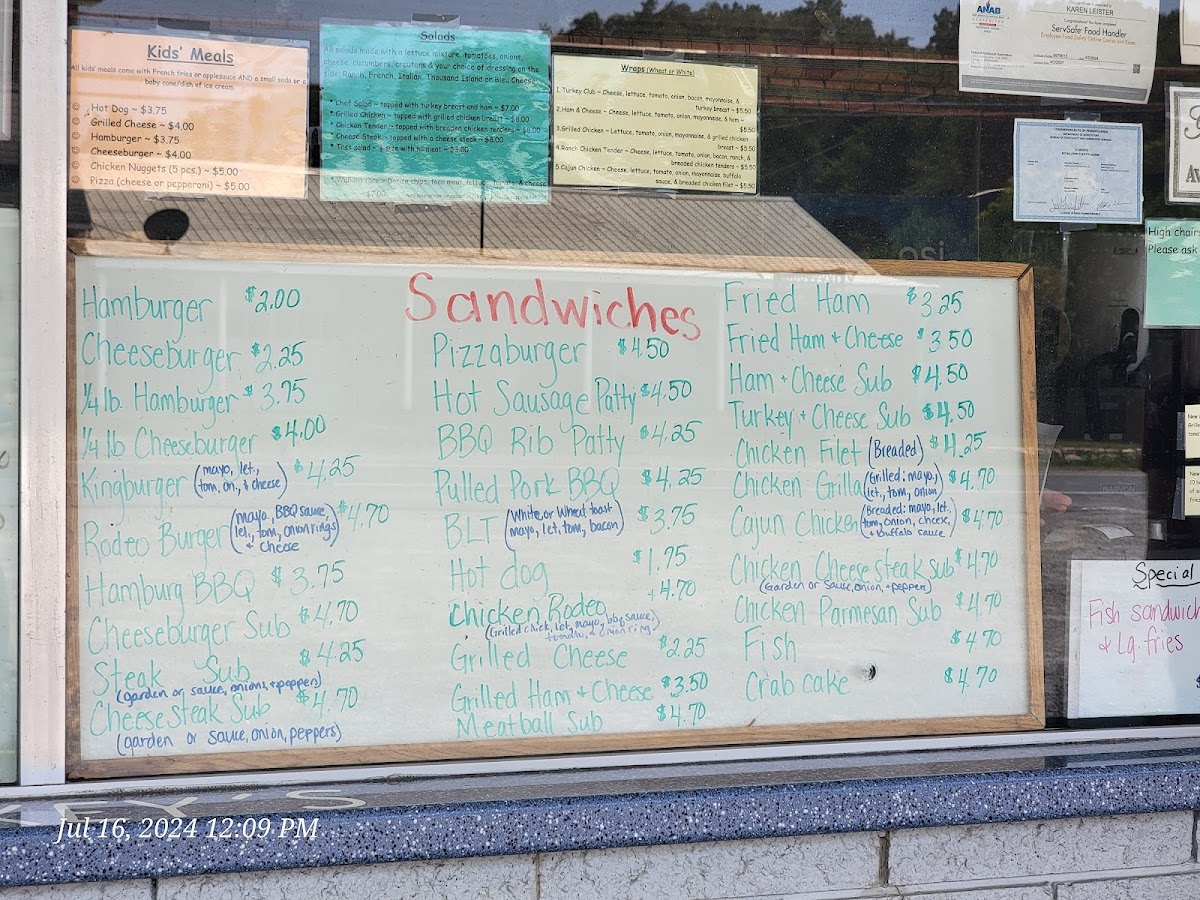 Kids' Meals
All kids' meals come with French fries or applesauce AND a small soda or a
baby cone/dish of ice cream.
Hot Dog ~ $3.75
Grilled Cheese ~ $4.00
Hamburger ~ $3.75
Cheeseburger ~ $4.00
Chicken Nuggets (5 pcs.) ~ $5.00
Pizza (cheese or pepperoni) ~ $5.00
Salads
All salads made with a lettuce mixture, tomatoes, onions,
cheese, cucumbers, croutons & your choice of dressing on the
side: Ranch, French, Italian, Thousand Island or Bleu Cheese
* Chef Salad ~ topped with turkey breast and ham ~ $7.00
* Grilled Chicken ~ topped with grilled chicken breast ~ $8.00
* Chicken Tender ~ topped with breaded chicken tenders ~ $8.00
* Cheese Steak ~ topped with a cheese steak ~ $8.00
size with no meat
chips, taco meat, lettuce, & cheese
Wraps (Wheat or White)
1. Turkey Club ~ Cheese, lettuce, tomato, onion, bacon, mayonnaise, &
turkey breast ~ $5.50
2. Ham & Cheese ~ Cheese, lettuce, tomato, onion, mayonnaise, & ham ~
$5.50
3. Grilled Chicken ~ Lettuce, tomato, onion, mayonnaise, & grilled chicken
breast ~ $5.50
4. Ranch Chicken Tender ~ Cheese, lettuce, tomato, onion, bacon, ranch, &
breaded chicken tenders ~ $5.50
5. Cajun Chicken ~ Cheese, lettuce, tomato, onion, mayonnaise, buffalo
sauce, & breaded chicken filet ~ $5.50
ANAB
KAREN LEISTER
ServSafe Food Handler
High chairs
Please ask
Sandwiches
Hamburger $2.00
Cheeseburger $2.25
1/4 lb. Hamburger $3.75
1/4 lb Cheeseburger $4.00
Kingburger (mayo, let., tom, on., & cheese) $4.25
Rodeo Burger (mayo, BBQ sauce, let., tom, onion rings & cheese) $4.70
Hamburg BBQ $3.75
Cheeseburger Sub $4.70
Steak Sub $4.25
(garden or sauce, onions, + peppers)
Cheese steak Sub $4.70
(garden or sauce, onion, peppers)
Pizzaburger $4.50
Hot Sausage Patty $4.50
BBQ Rib Patty $4.25
Pulled Pork BBQ $4.25
BLT (White or Wheat toast mayo, let, tom, bacon) $3.75
Hot dog $1.75
Chicken Rodeo 4.70
(Grilled chick, let, mayo, bbq sauce,
tomato, & onion ring)
Grilled Cheese $2.25
Grilled Ham + Cheese $3.50
Meatball Sub $4.70
Fried Ham $3.25
Fried Ham + Cheese $3.50
Ham + Cheese Sub $4.50
Turkey + Cheese Sub $4.50
Chicken Filet (Breaded) $4.25
Chicken Grilla (Grilled: mayo, let., tom, onion) $4.70
Cajun Chicken (Breaded: mayo, let. tom, onion, cheese, + Buffalo sauce) $4.70
Chicken Cheese steak sub $4.70
(Garden or Sauce, onion, + peppers)
Chicken Parmesan Sub $4.70
Fish $4.70
Crab cake $4.70
Special
Fish sandwich
& Lg. fries
Jul 16, 2024 12:09 PM